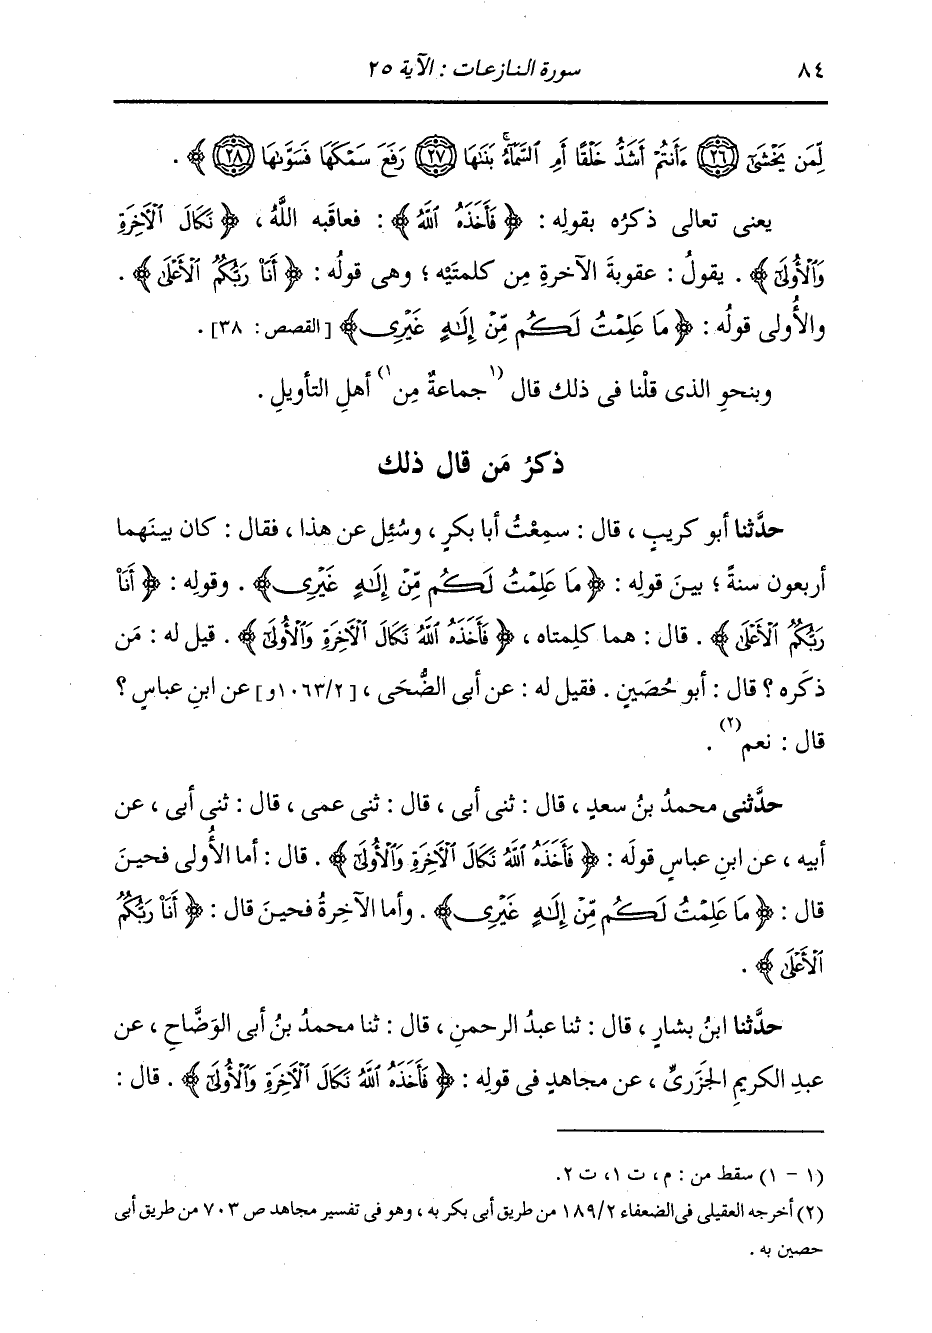 ٨٤ سورة النازعات : الآية ٢٥
لِّمَن يَخْشَىٰٓ ﴿٢٦﴾ ءَأَنتُمْ أَشَدُّ خَلْقًا أَمِ ٱلسَّمَآءُۚ بَنَىٰهَا ﴿٢٧﴾ رَفَعَ سَمْكَهَا فَسَوَّىٰهَا ﴿٢٨﴾ ﴾ .
يعنى تعالى ذكرُه بقولِه : ﴿ فَأَخَذَهُ ٱللَّهُ ﴾ : فعاقبه اللَّهُ ، ﴿ نَكَالَ ٱلْآخِرَةِ
وَٱلْأُولَىٰٓ ﴾ . يقولُ : عقوبةَ الآخرةِ مِن كلمتَيْه ؛ وهى قولُه : ﴿ أَنَا۠ رَبُّكُمُ ٱلْأَعْلَىٰ ﴾ .
والأُولى قولُه : ﴿ مَا عَلِمْتُ لَكُم مِّنْ إِلَٰهٍ غَيْرِى ﴾ [القصص: ٣٨] .
وبنحوِ الذى قلْنا فى ذلك قال (١ جماعةٌ مِن ١) أهلِ التأويلِ .
ذكرُ مَن قال ذلك
حدَّثنا أبو كريبٍ ، قال : سمِعْتُ أبا بكرٍ ، وسُئِل عن هذا ، فقال : كان بينَهما
أربعون سنةً ؛ بينَ قولِه : ﴿ مَا عَلِمْتُ لَكُم مِّنْ إِلَٰهٍ غَيْرِى ﴾ . وقولِه : ﴿ أَنَا۠
رَبُّكُمُ ٱلْأَعْلَىٰ ﴾ . قال : هما كلِمتاه ، ﴿ فَأَخَذَهُ ٱللَّهُ نَكَالَ ٱلْآخِرَةِ وَٱلْأُولَىٰٓ ﴾ . قيل له : مَن
ذكَره ؟ قال : أبو حُصَينٍ . فقيل له : عن أبى الضُّحَى ، [١٠٦٣/٢و] عن ابنِ عباسٍ ؟
قال : نعم(٢) .
حدَّثنى محمدُ بنُ سعدٍ ، قال : ثنى أبى ، قال : ثنى عمى ، قال : ثنى أبى ، عن
أبيه ، عن ابنِ عباسٍ قولَه : ﴿ فَأَخَذَهُ ٱللَّهُ نَكَالَ ٱلْآخِرَةِ وَٱلْأُولَىٰٓ ﴾ . قال : أما الأُولى فحينَ
قال : ﴿ مَا عَلِمْتُ لَكُم مِّنْ إِلَٰهٍ غَيْرِى ﴾ . وأما الآخرةُ فحينَ قال : ﴿ أَنَا۠ رَبُّكُمُ
ٱلْأَعْلَىٰ ﴾ .
حدَّثنا ابنُ بشارٍ ، قال : ثنا عبدُ الرحمنِ ، قال : ثنا محمدُ بنُ أبى الوَضَّاحِ ، عن
عبدِ الكريمِ الجَزَرىِّ ، عن مجاهدٍ فى قولِه : ﴿ فَأَخَذَهُ ٱللَّهُ نَكَالَ ٱلْآخِرَةِ وَٱلْأُولَىٰٓ ﴾ . قال :
(١ - ١) سقط من : م ، ت ١، ت ٢.
(٢) أخرجه العقيلى فى الضعفاء ١٨٩/٢ من طريق أبى بكر به ، وهو فى تفسير مجاهد ص ٧٠٣ من طريق أبى
حصين به .